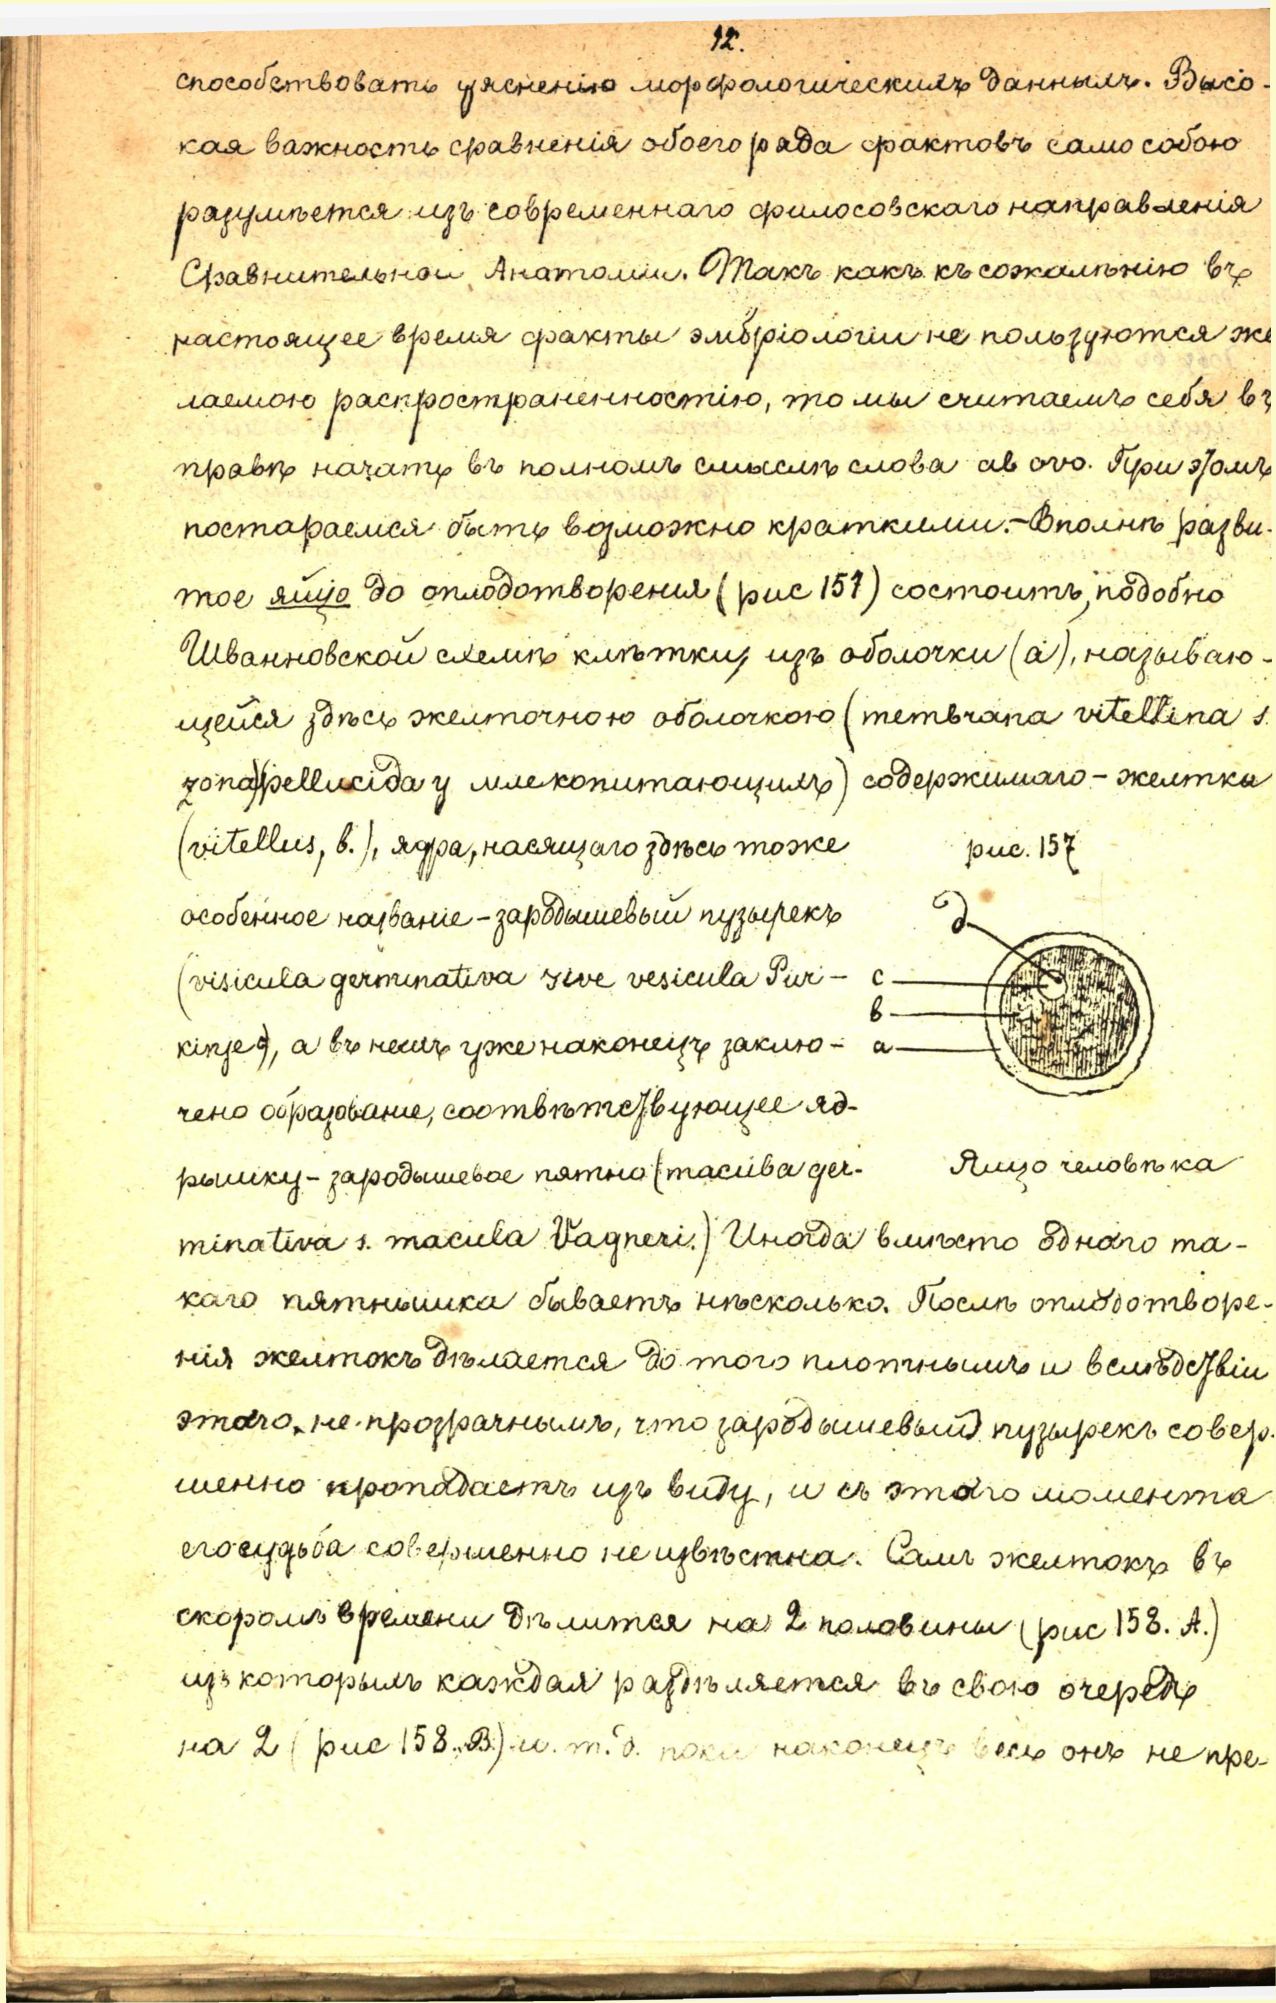 12.
способствовать уясненію морфологическихъ данныхъ. Высо-
кая важность сравненія обоего рода фактовъ само собою
разумѣется изъ современнаго филосовскаго направленія
Сравнительной Анатоміи. Такъ какъ къ сожалѣнію въ
настоящее время факты эмбріологіи не пользуются же
лаемою распространенностію, то мы считаемъ себя въ
правѣ начать въ полномъ смыслѣ слова ab ovo. При этомъ
постараемся быть возможно краткими. – Вполнѣ разви-
тое яйцо до оплодотворенія (рис 157) состоитъ, подобно
Шванновской схемѣ клѣтки, изъ оболочки (а), называю-
щейся здѣсь желточною оболочкою (membrana vitellina s.
zona pellucida у млекопитающихъ) содержимаго – желтка
(vitellus, в.), ядра, носящаго здѣсь тоже
особенное названіе – зародышевый пузырекъ
(visicula germinativa sive vesicula Pur-
kinje), а въ немъ уже наконецъ заклю-
чено образованіе, соотвѣтствующее яд-
рышку – зародышевое пятно (macula ger-
minativa s. macula Vagneri.) Иногда вмѣсто одного та-
каго пятнышка бываетъ нѣсколько. Послѣ оплодотворе-
нія желтокъ дѣлается до того плотнымъ и вслѣдствіи
этого не прозрачнымъ, что зародышевый пузырекъ совер-
шенно пропадаетъ изъ виду, и съ этого момента
его судьба совершенно неизвѣстна. Самъ желтокъ въ
скоромъ времени дѣлится на 2 половины (рис 158. А.)
изъ которыхъ каждая раздѣляется въ свою очередь
на 2 (рис 158. В.) и. т. д. пока наконецъ весь онъ не пре-
рис. 157
д
с
в
а
Яицо человѣка